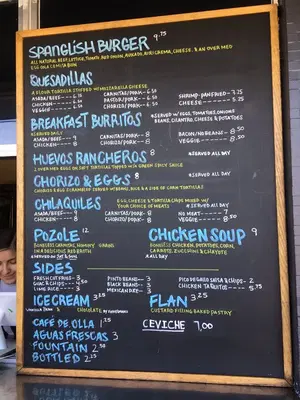 SPANGLISH BURGER 9.75
ALL NATURAL BEEF, LETTUCE, TOMATO, RED ONION, AVOCADO, AIOLI CREMA, CHEESE, & AN OVER MED
EGG ON A
QUESADILLAS
A FLOUR TORTILLA STUFFED W/ MOZZARELLA CHEESE
ASADA/BEEF CARNITAS/PORK 6.50 SHRIMP PAN FRIED 7.75
CHICKEN 6.50 PASTOR/PORK 6.50 CHEESE 5.75
VEGGIE CHORIZO/PORK 6.50
BREAKFAST BURRITOS
SERVED W/ EGGS, TOMATOES, ONIONS
SERVED DAILY BEANS, CILANTRO, CHEESE & POTATOES
ASADA/BEEF CARNITAS/PORK 8 BACON/W BEANS 8.50
CHICKEN PASTOR/PORK 8 VEGGIE 8.50
VEGGIE CHORIZO/PORK 8
HUEVOS RANCHEROS 8 SERVED ALL DAY
2 OVER MED EGGS ON SOFT TORTILLAS TOPPED W/ A GREEN SPICY SAUCE
CHORIZO & EGGS 8 SERVED ALL DAY
CHORIZO & EGG SCRAMBLED SERVED W/ BEANS, RICE & A SIDE OF CORN TORTILLAS
CHILAQUILES EGG, CHEESE & TORTILLA CHIPS MIXED W/
YOUR CHOICE OF MEATS SERVED ALL DAY
ASADA/BEEF CARNITAS/PORK 8 NO MEAT 7
CHICKEN PASTOR/PORK 8 VEGGIE
VEGGIE CHORIZO/PORK 8
POZOLE 12 CHICKEN SOUP 9
BONELESS CARNITAS, HOMINY CHICKEN, POTATOES, CORN,
IN A DELICIOUS RED BROTH CARROTS, ZUCCHINI & CHAYOTE
SERVED ALL DAY
SIDES
FRENCH FRIES 3 PINTO BEANS 3 PICO DE GALLO SALSA & CHIPS 2
GUAC & CHIPS 4.50 BLACK BEANS 3 CHICKEN TAQUITOS 5.75
LIME RICE 3 MEXICAN RICE 3
ICE CREAM 3.25 FLAN 3.25
VANILLA BEAN & CHOCOLATE CUSTARD FILLING BAKED PASTRY
CAFÉ DE OLLA 1.25 CEVICHE 7.00
AGUAS FRESCAS 3
FOUNTAIN 2.50
BOTTLED 2.25